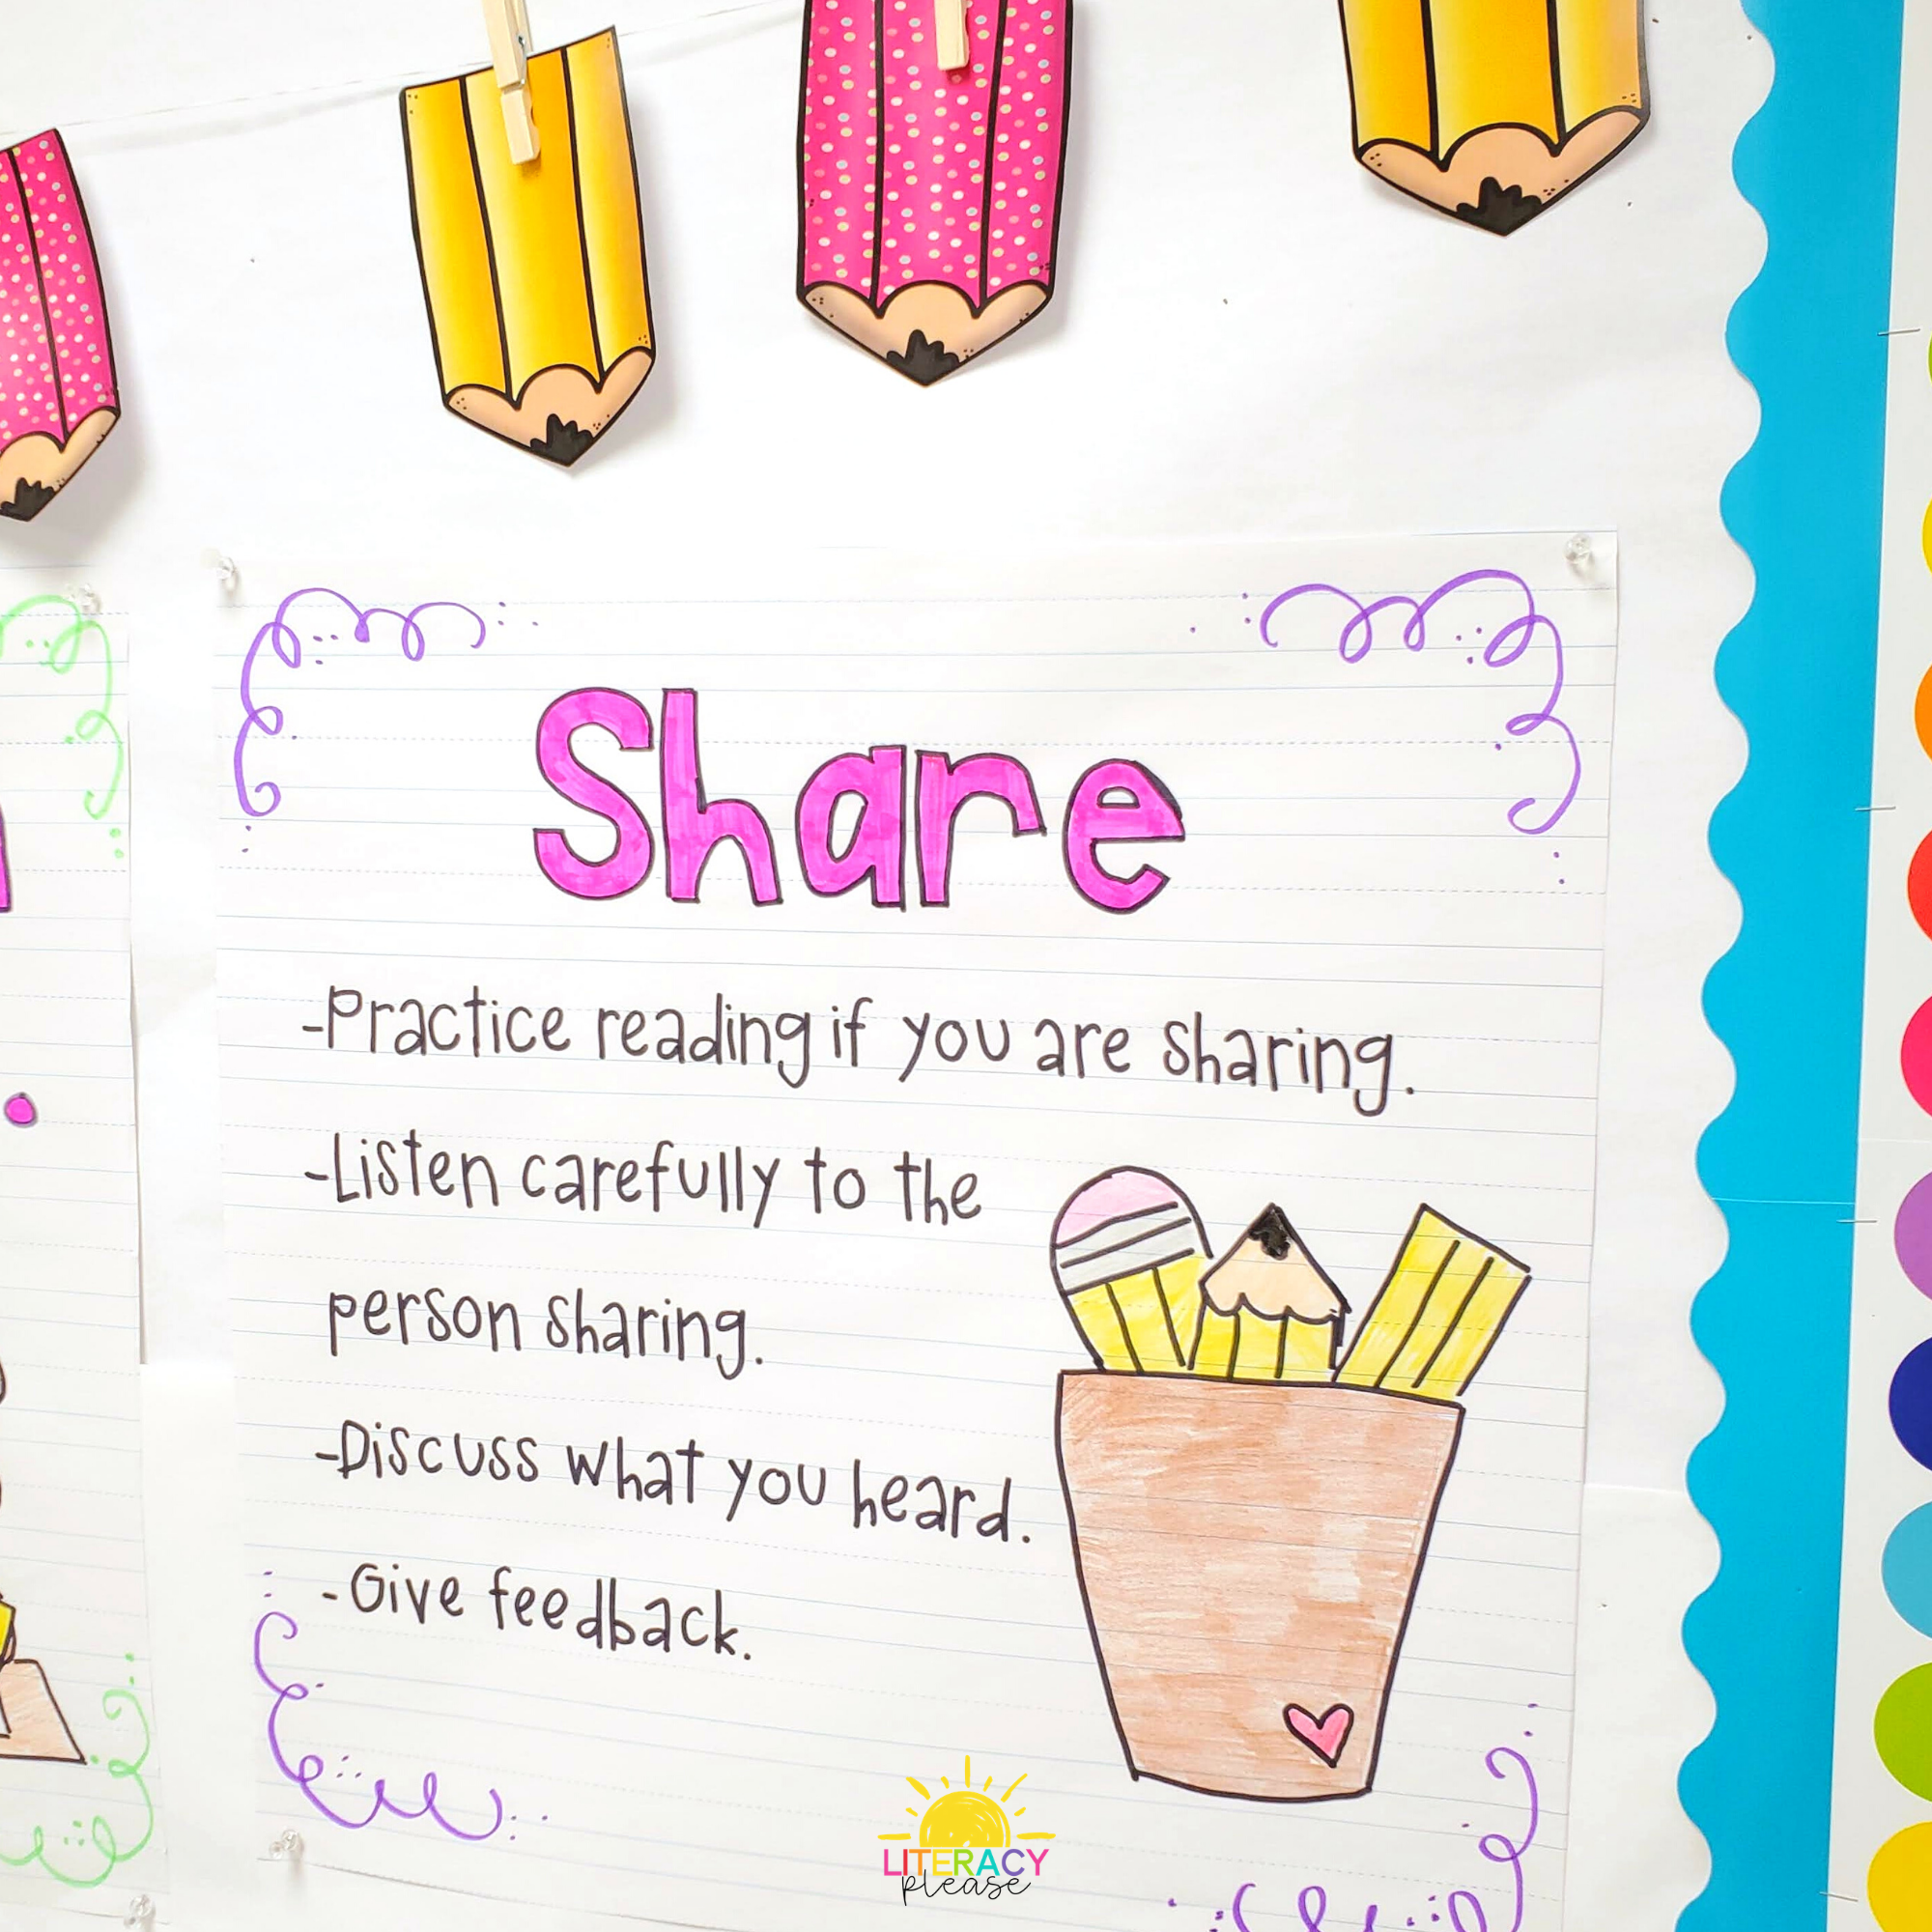 Share
-Practice reading if you are sharing.
-Listen carefully to the
person sharing.
-Discuss what you heard.
-Give feedback.
LITERACY
please